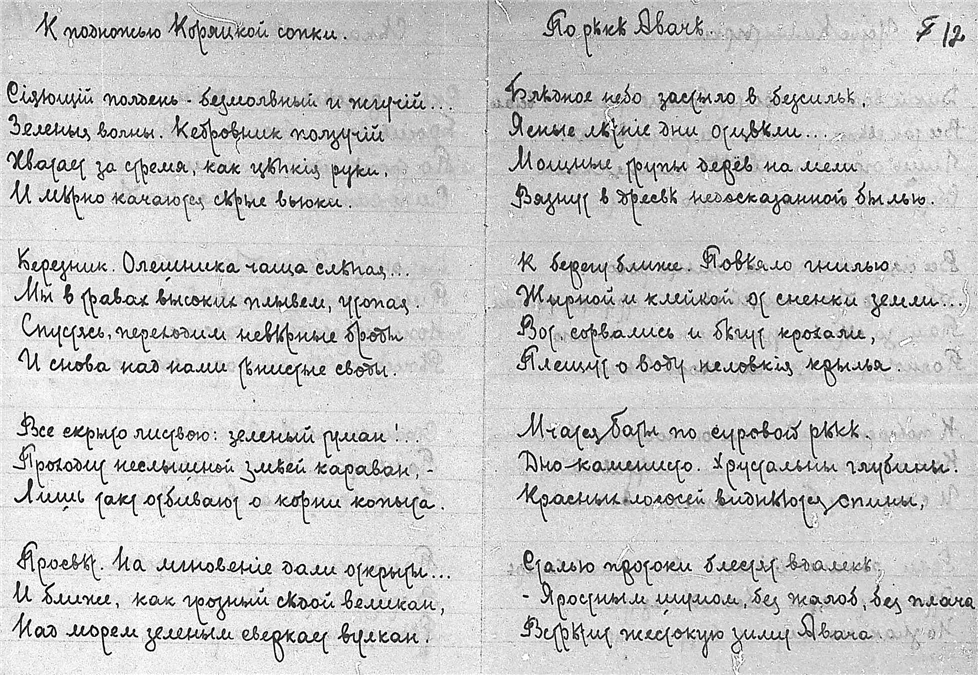 К подножью Коряцкой сопки.
Сіяющій полдень - безмолвный и жгучій...
Зеленыя волны. Кедровник ползучій
Хватает за стремя, как цѣпкія руки,
И мѣрно качаются сѣрые вьюки.
Березник. Олешника чаща слѣпая...
Мы в травах высоких плывем, утопая.
Спустясь, переходим невѣрные броды
И снова над нами тѣнистые своды.
Все скрыто листвою: зеленый туман!..
Проходит неслышной змѣей караван, -
Лишь такт отбивают о корни копыта.
Просвѣт. На мгновение дали открыты...
И ближе, как грозный сѣдой великан,
Над морем зеленым сверкает вулкан.
По рѣкѣ Авачѣ.
F 12
Блѣдное небо застыло в безсильѣ,
Ясные лѣтніе дни отцвѣли...
Мощные трупы дерёв на мели
Вязнут в дресвѣ недосказанной былью.
К берегу ближе. Повѣяло гнилью
Жирной и клейкой от сненки земли...
Вот сорвались и бѣгут крохали,
Плещут о воду неловкія крылья.
Мчатся баты по суровой рѣкѣ.
Дно-каменисто. Хрустальны глубины.
Красных лососей виднѣются спины,
Сталью протоки блестят вдалекѣ,
- Яростным шумом, без жалоб, без плача
Встрѣтит жестокую зиму Авача